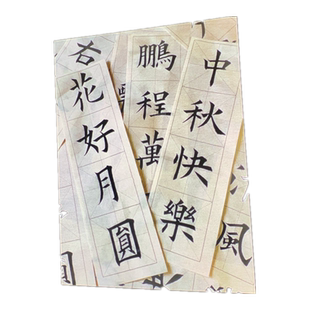 中秋快樂
鵬程萬
花好月圓
風